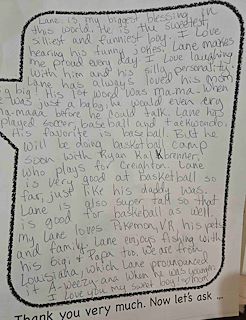 Lane is my biggest blessing in
this world. He is the sweetest,
silliest and funniest boy. I love
hearing his funny jokes. Lane makes
me proud every day. I love laughing
with him and his silly personality.
Lane has always loved his mom
big! His 1st word was ma-ma. When
he was just a baby he would even cry
ma-maaa before he could talk. Lane has
played soccer, baseball and taekwondo.
His favorite is baseball. But he
will be doing basketball camp
soon with Ryan Kalkbrenner,
who plays for Creighton. Lane
is very good at basketball so
far, just like his daddy was.
Lane is also super tall so that
is good for basketball as well.
My Lane loves Pokemon, VR, his pets
and family. Lane enjoys fishing with
his gigi & Papa too. We are from
Louisiana, which Lane pronounced
A-weezy-ana when he was younger.
I love you my sweet boy!
Thank you very much. Now let's ask ...